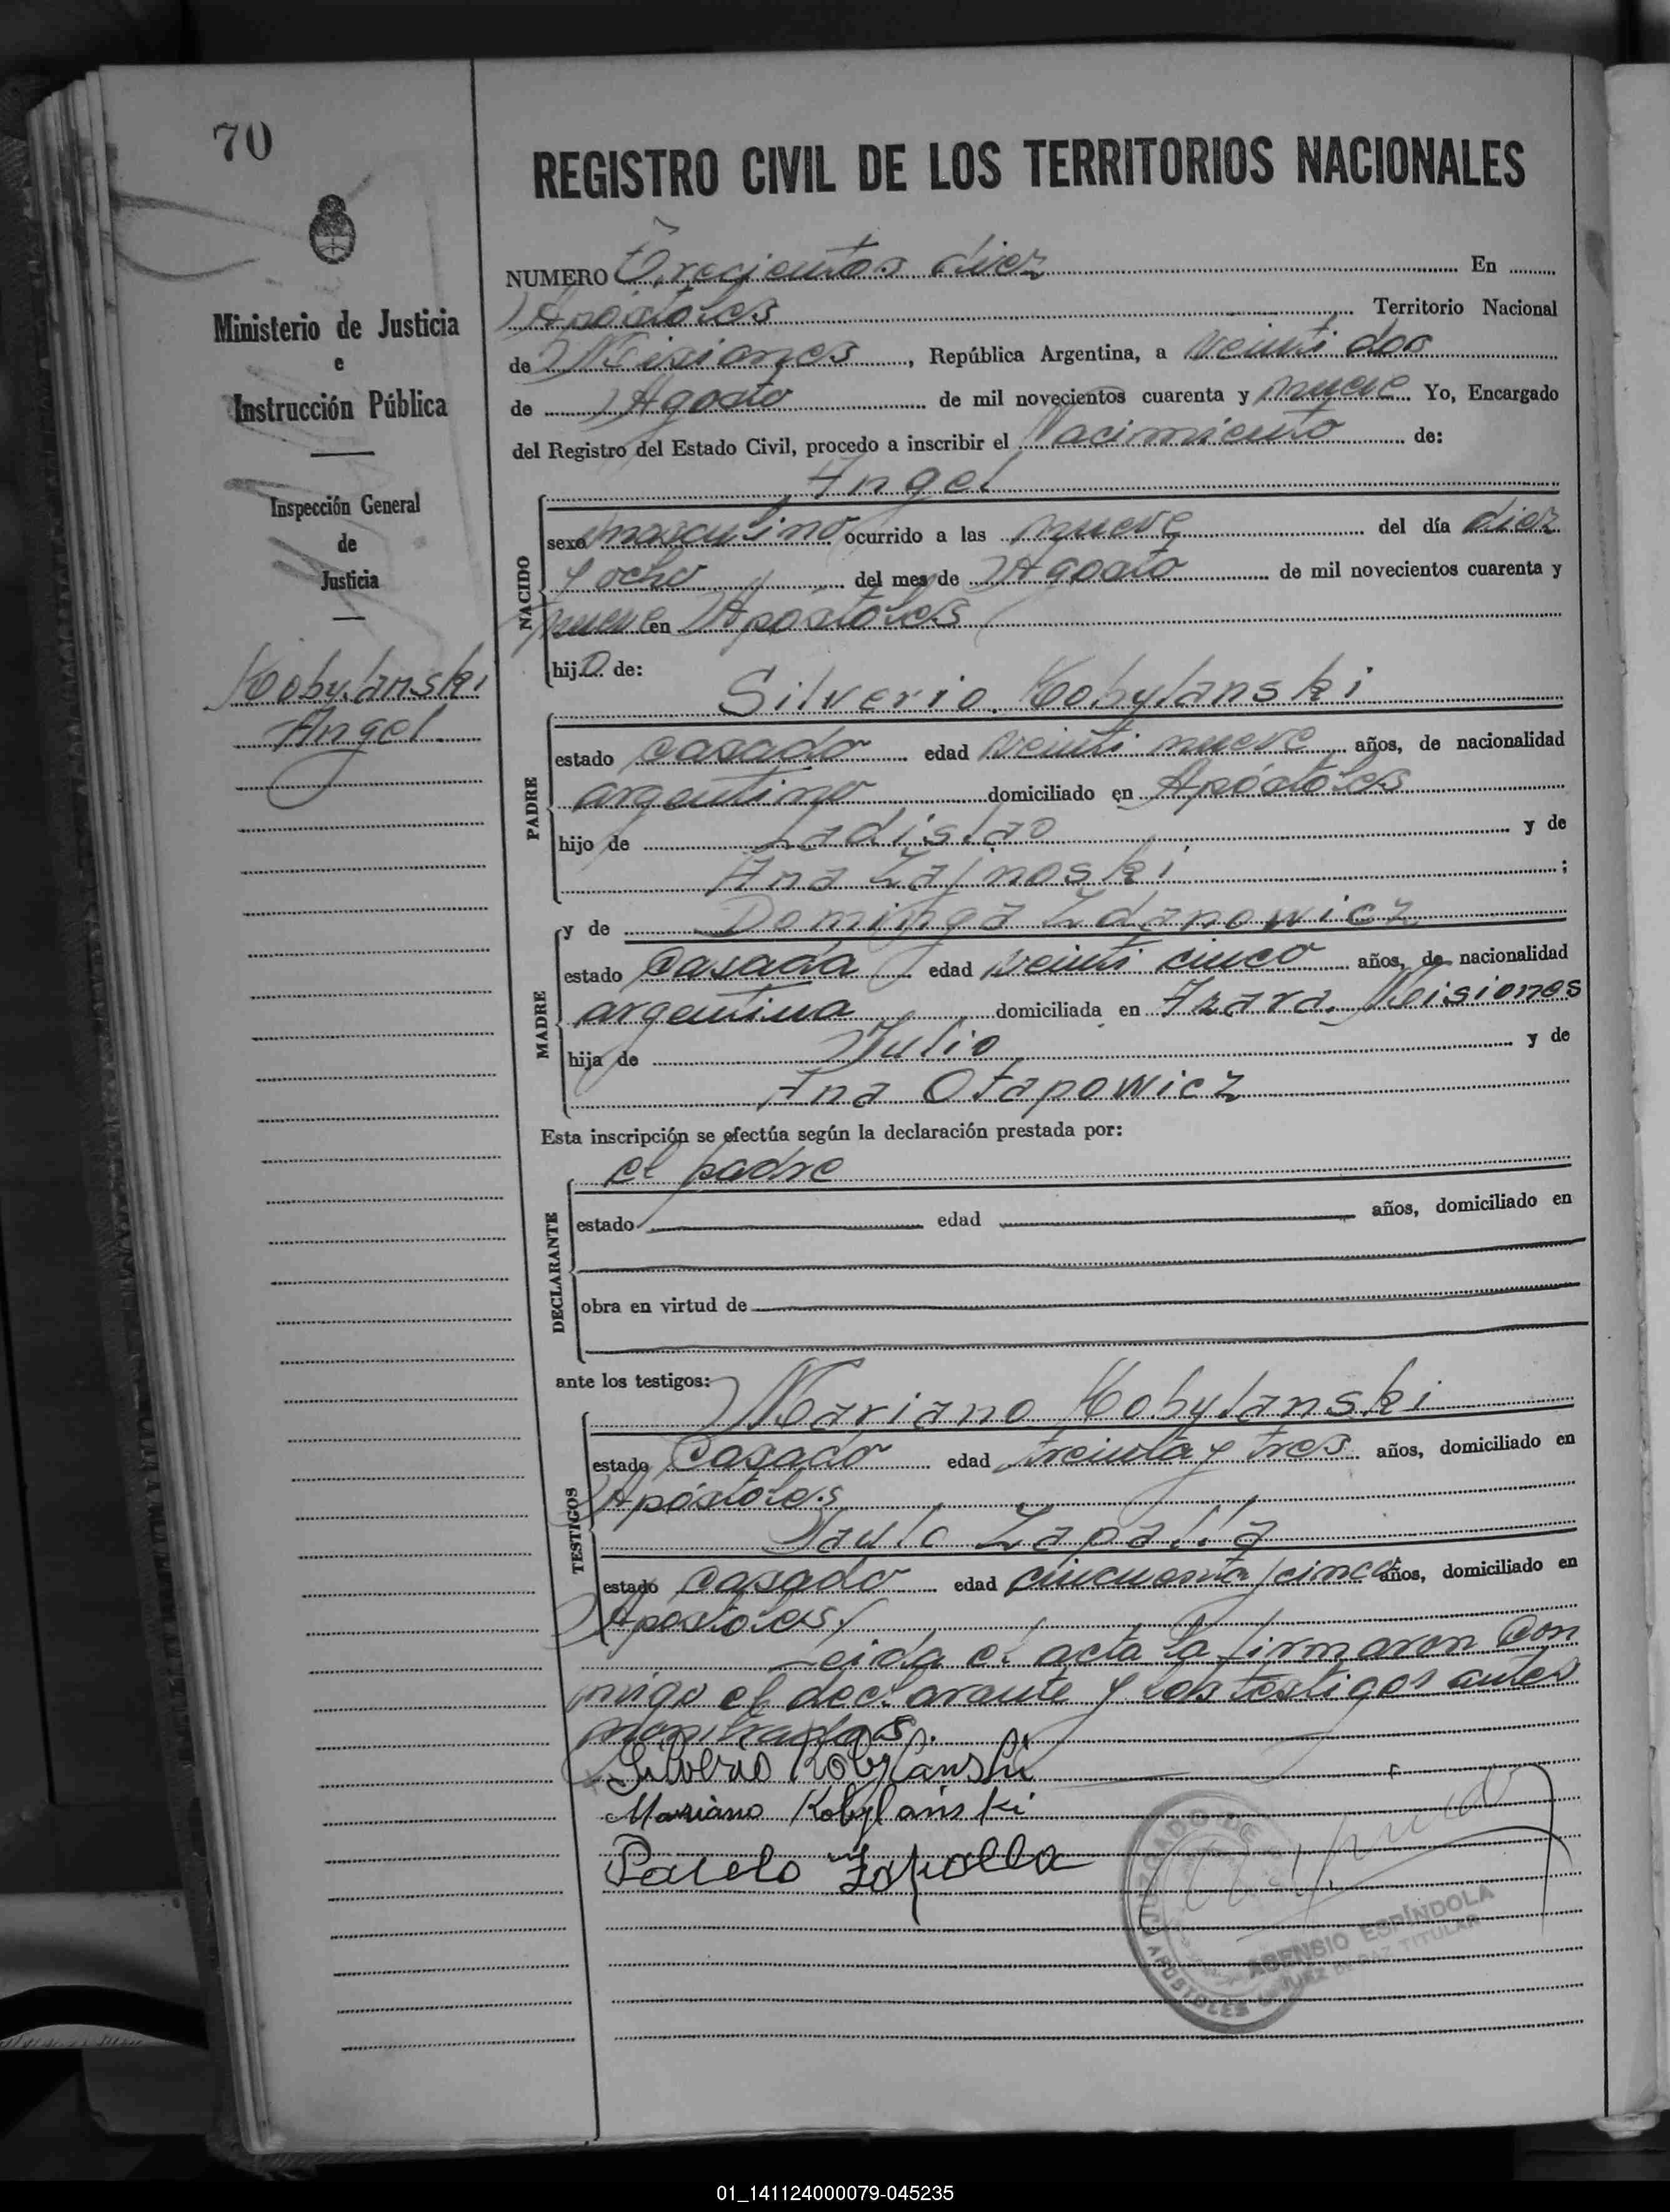 70
REGISTRO CIVIL DE LOS TERRITORIOS NACIONALES
Ministerio de Justicia
e
Instrucción Pública
Inspección General
de
Justicia
Kobylanski
Angel
NUMERO Trecientos diez En
Apóstoles Territorio Nacional
de Misiones, República Argentina, a veinti dos
de Agosto de mil novecientos cuarenta y nueve Yo, Encargado
del Registro del Estado Civil, procedo a inscribir el Nacimiento de:
Angel
NACIDO
sexo masculino ocurrido a las nueve del día diez
y ocho del mes de Agosto de mil novecientos cuarenta y
nueve en Apóstoles
hijo de:
Silverio Kobylanski
PADRE
estado casado edad veinti nueve años, de nacionalidad
argentino domiciliado en Apóstoles
hijo de Ladislao y de
Ana Zajnoski ;
y de Dominga Zdanowicz
MADRE
estado casada edad veinti cinco años, de nacionalidad
argentina domiciliada en Azara. Misiones
hija de Julio y de
Ana Otapowicz
Esta inscripción se efectúa según la declaración prestada por:
el padre
DECLARANTE
estado edad años, domiciliado en
obra en virtud de
ante los testigos:
Mariano Kobylanski
TESTIGOS
estado casado edad treinta y tres años, domiciliado en
Apóstoles
Paulo Zapalla
estado casado edad cincuenta cinco años, domiciliado en
Apóstoles
Leida el acta la firmaron con
migo el declarante y los testigos antes
nombrados.
Silverio Kobylanski
Mariano Kobylański
Pacelo Zapolla
JUZGADO DE
APOSTOLES
ASENSIO ESPÍNDOLA
JUEZ DE PAZ TITULAR
01_141124000079-045235